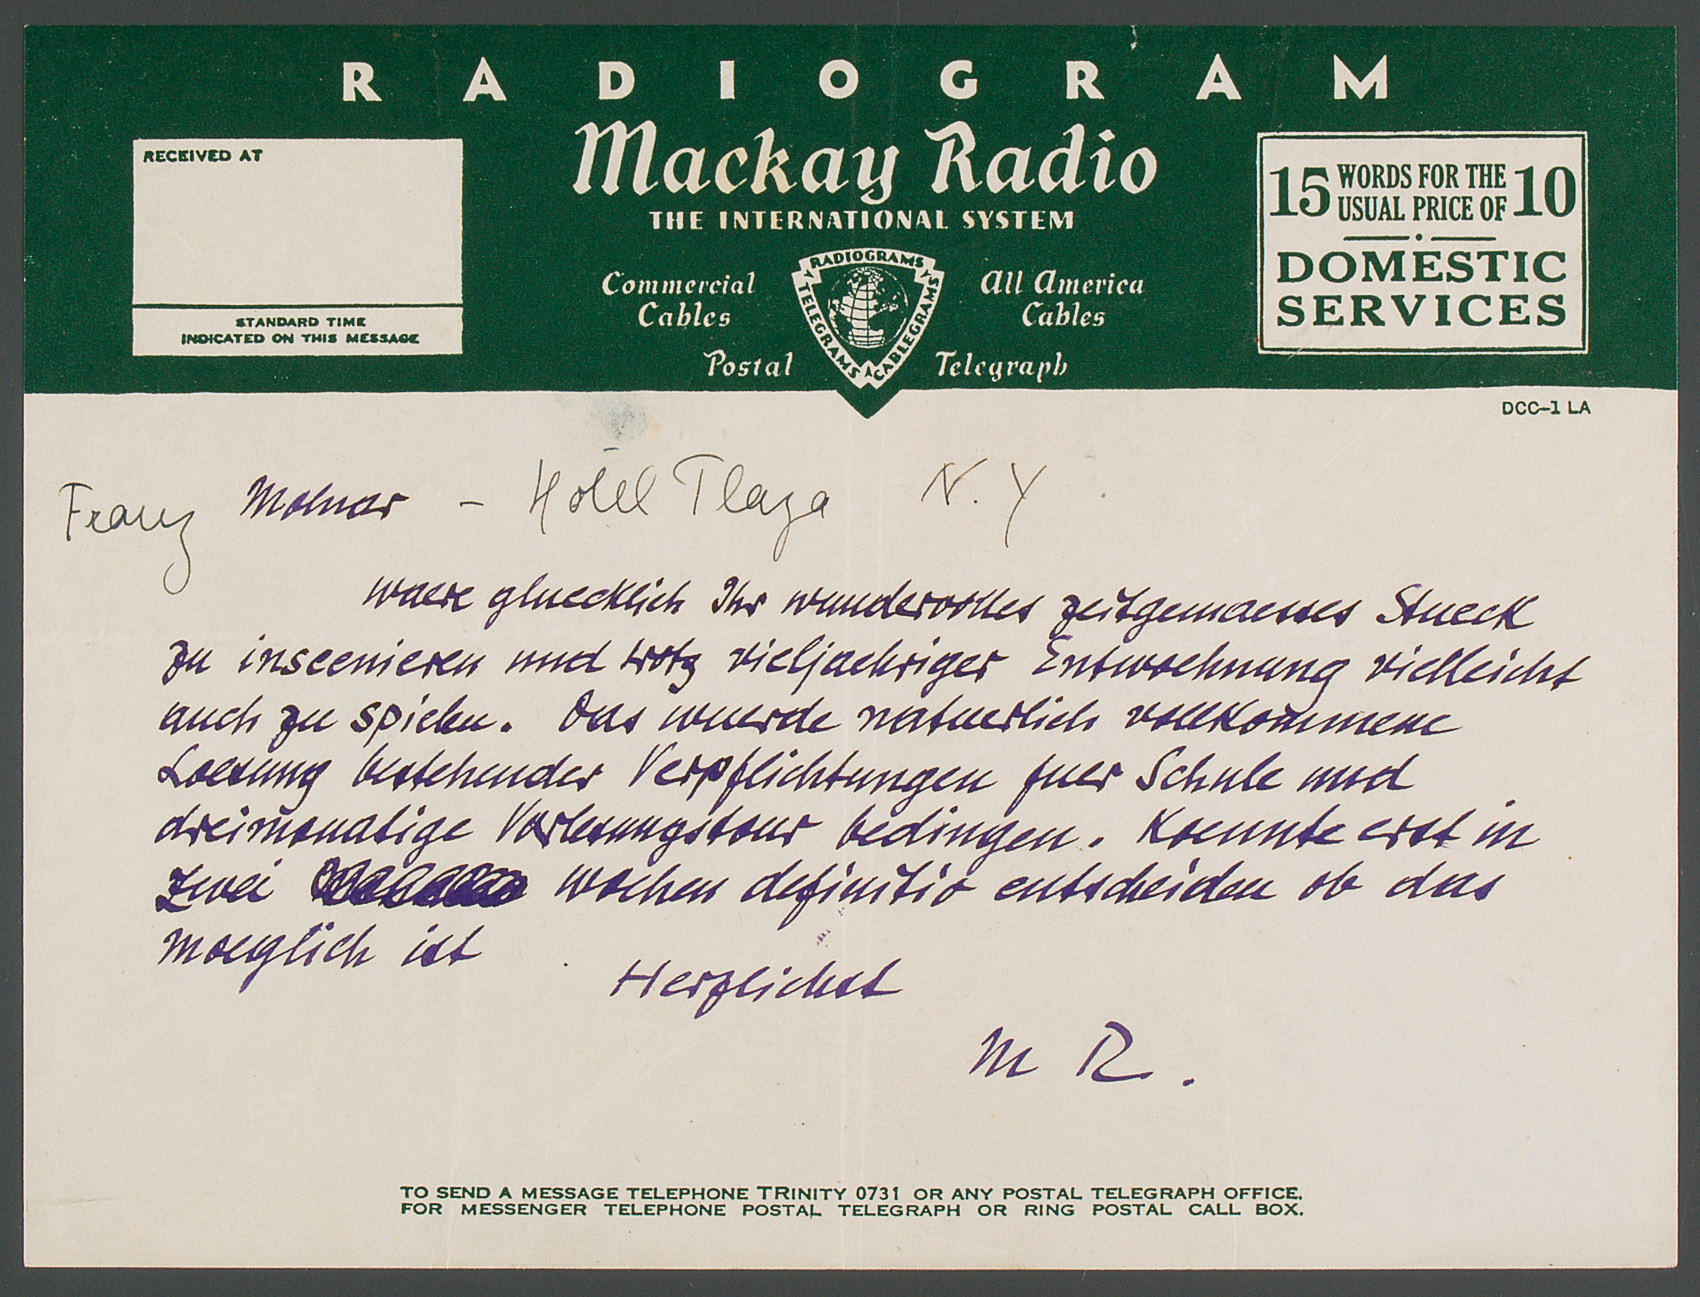 RADIOGRAM
Mackay Radio
THE INTERNATIONAL SYSTEM
RECEIVED AT
STANDARD TIME
INDICATED ON THIS MESSAGE
Commercial Cables
All America Cables
Postal Telegraph
RADIOGRAMS
TELEGRAMS
CABLEGRAMS
15 WORDS FOR THE USUAL PRICE OF 10
DOMESTIC
SERVICES
DCC-1 LA
Franz Molnar - Hotel Plaza N.Y
waere gluecklich Ihr wundervolles zeitgemaesses Stueck
zu inscenieren und trotz vieljaehriger Entwoehnung vielleicht
auch zu spielen. Das wuerde natuerlich vollkommene
Loesung bestehender Verpflichtungen fuer Schule und
dreimonatige Vorlesungstour bedingen. Koennte erst in
zwei Wochen definitiv entscheiden ob das
moeglich ist
Herzlichst
M R.
TO SEND A MESSAGE TELEPHONE TRINITY 0731 OR ANY POSTAL TELEGRAPH OFFICE.
FOR MESSENGER TELEPHONE POSTAL TELEGRAPH OR RING POSTAL CALL BOX.